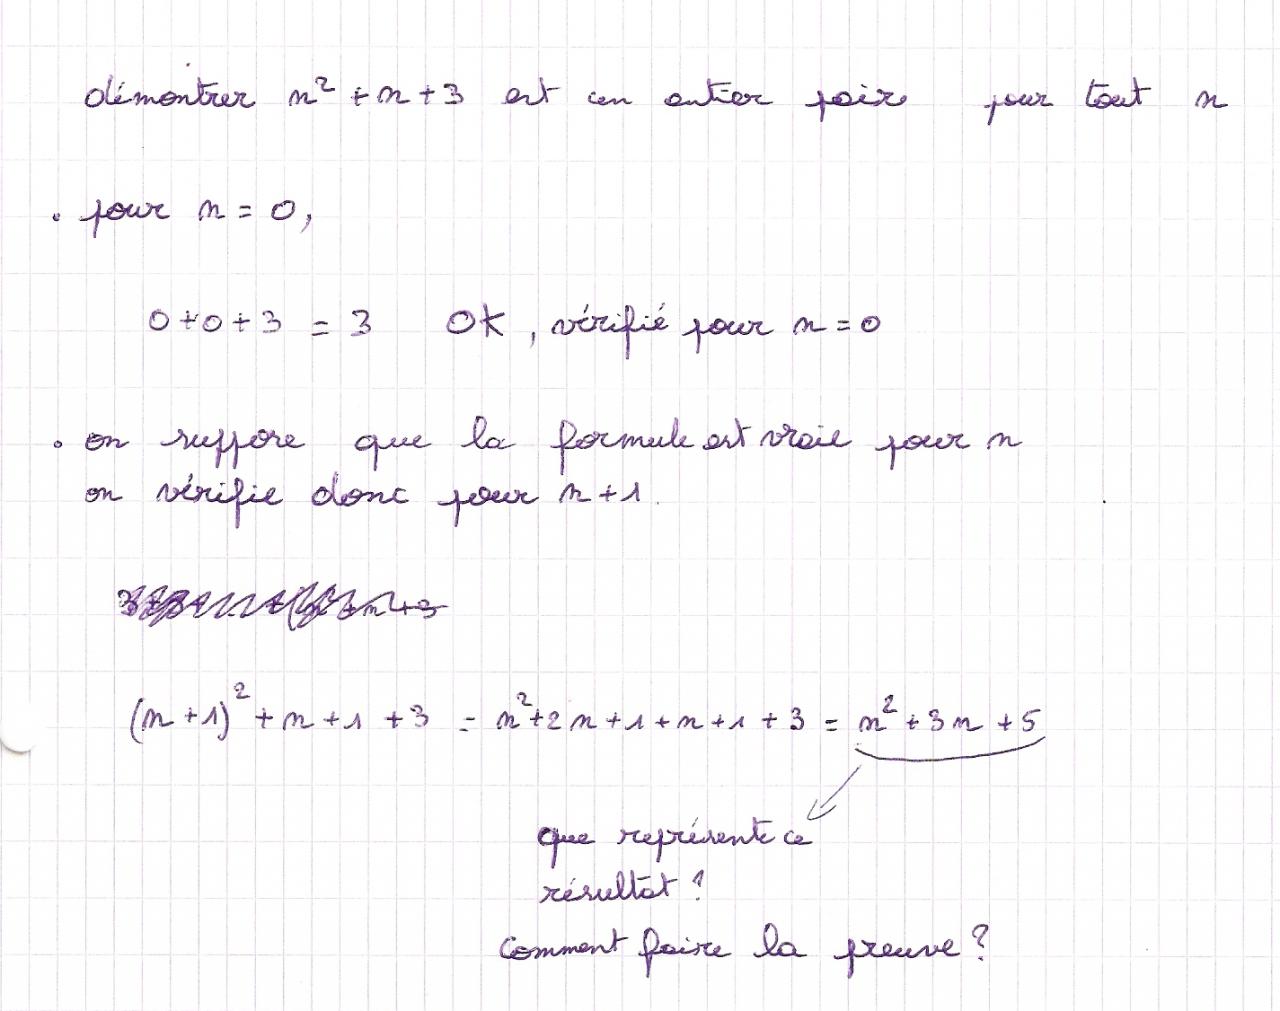 démontrer n² + n + 3 est un entier pair pour tout n
• pour n = 0,
0 + 0 + 3 = 3 OK, vérifié pour n = 0
• on suppose que la formule est vraie pour n
on vérifie donc pour n + 1.
(n + 1)² + n + 1 + 3 = n² + 2n + 1 + n + 1 + 3 = n² + 3n + 5
que représente ce
résultat ?
Comment faire la preuve ?